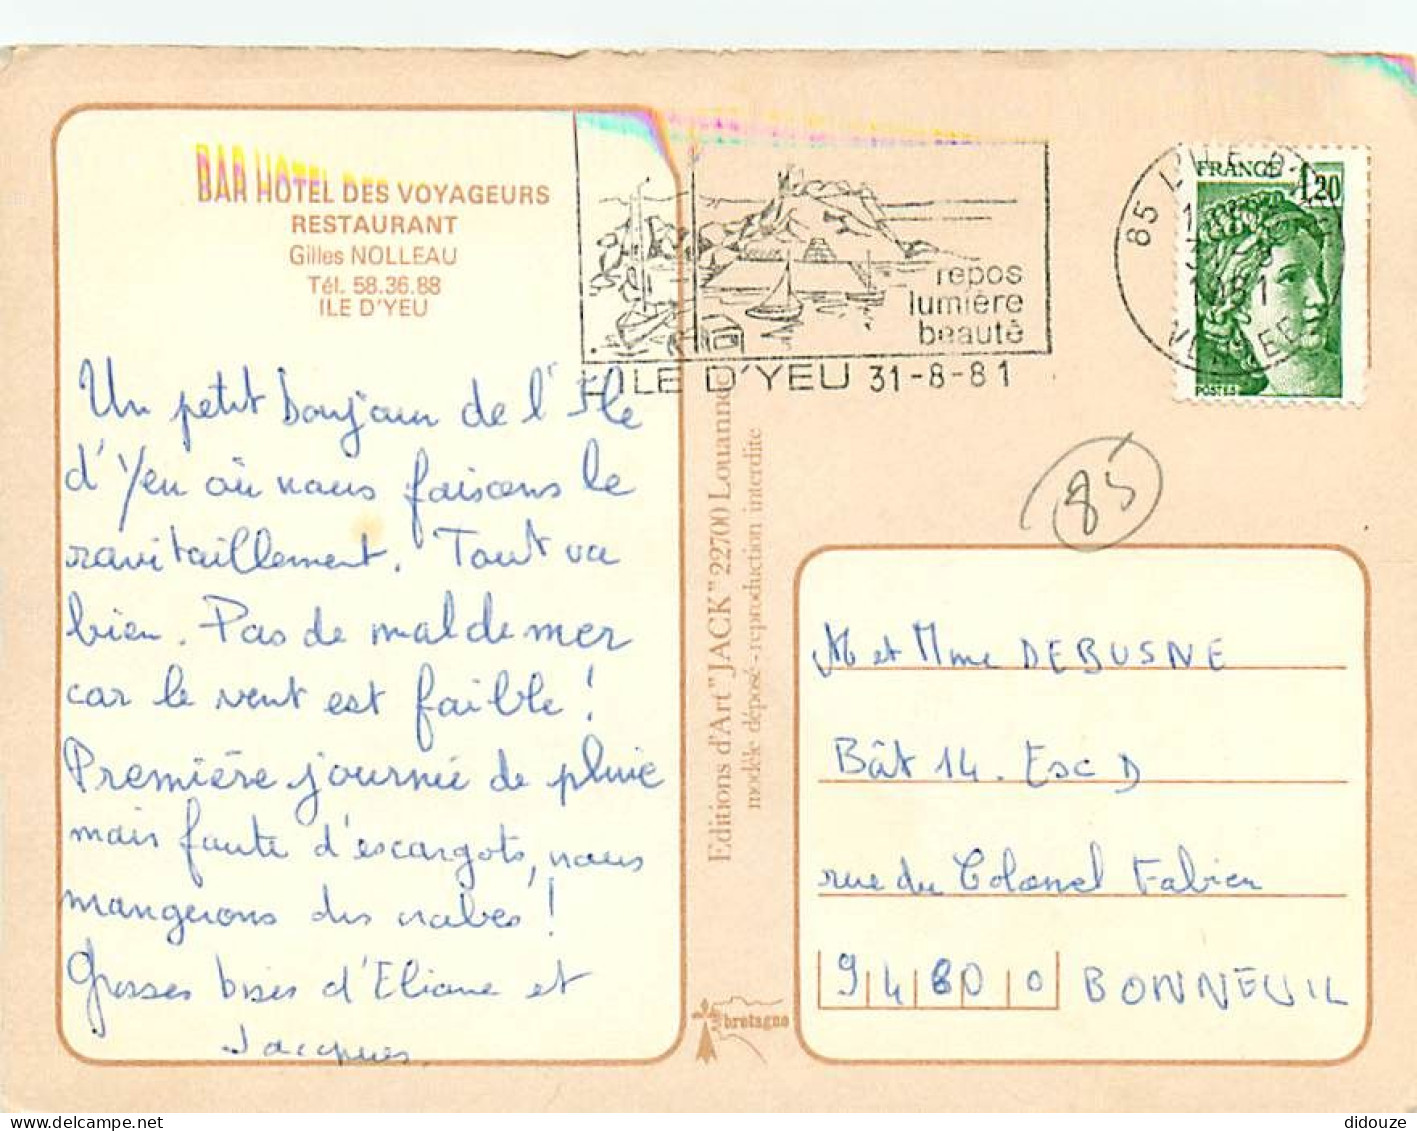 BAR HOTEL DES VOYAGEURS
RESTAURANT
Gilles NOLLEAU
Tél. 58.36.88
ILE D'YEU
Un petit bonjour de l'Ile
d'Yeu où nous faisons le
ravitaillement. Tout va
bien. Pas de mal de mer
car le vent est faible !
Première journée de pluie
mais faute d'escargots, nous
mangerons des crabes !
Grosses bises d'Eliane et
Jacques.
repos
lumière
beauté
L'ILE D'YEU 31-8-81
85
1981
FRANCE 1,20
POSTES
85
Editions d'Art "JACK" 22700 Louannec
modèle déposé - reproduction interdite
bretagne
M et Mme DEBUSNE
Bât 14. Esc D
rue du Colonel Fabien
94800 BONNEUIL
didouze